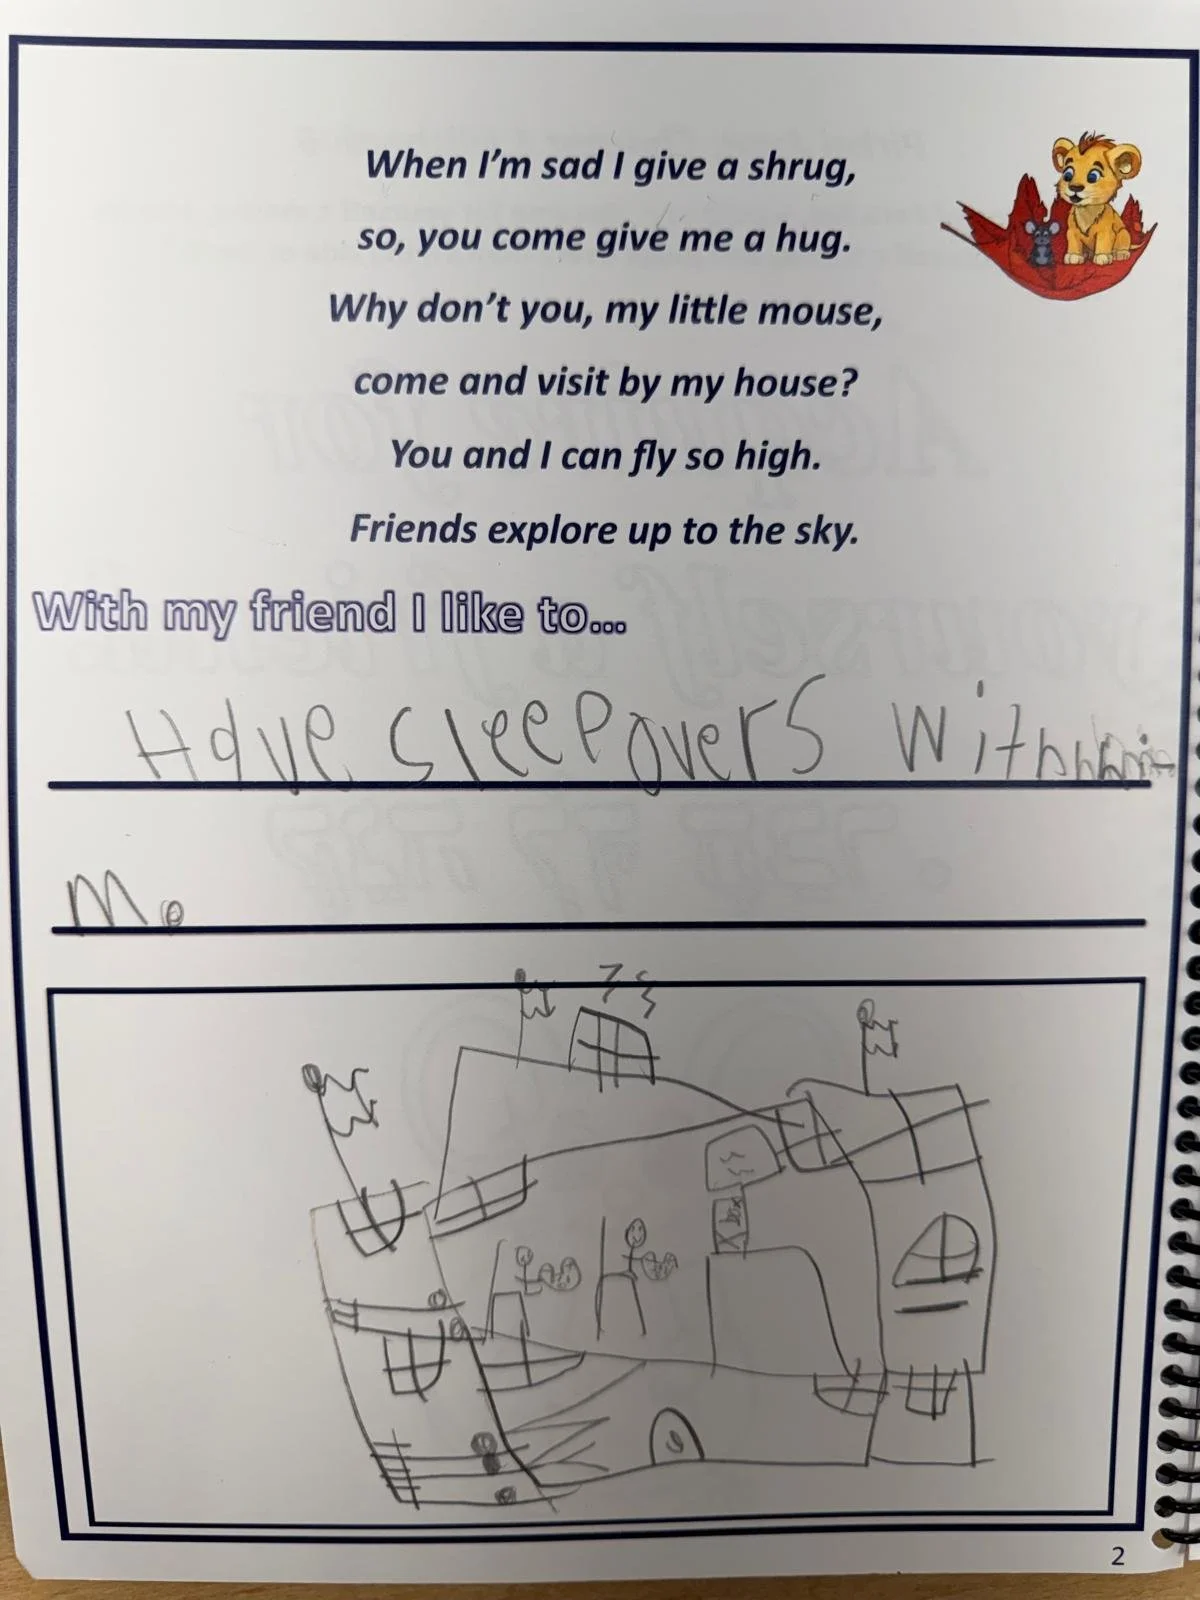 When I'm sad I give a shrug,
so, you come give me a hug.
Why don't you, my little mouse,
come and visit by my house?
You and I can fly so high.
Friends explore up to the sky.
With my friend I like to...
Have sleepovers with
Me
X box
2